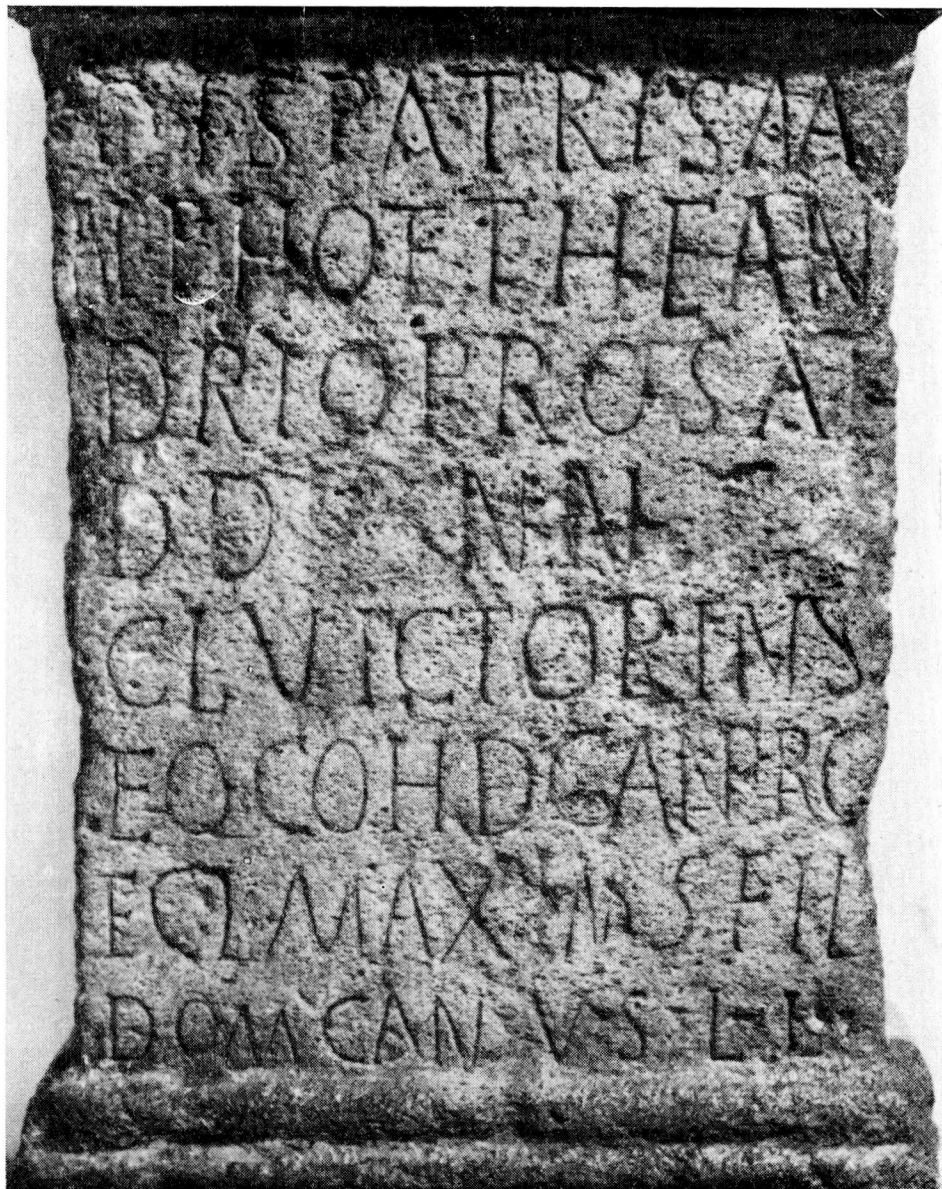 DIS PATRIS MA
NALPHO ET THEAN
DRIO PRO SAL
DD NN
CL VICTORINVS
EQ COH D CAN PRO
EQ MAXIMVS FIL
DOM CAN V S L L